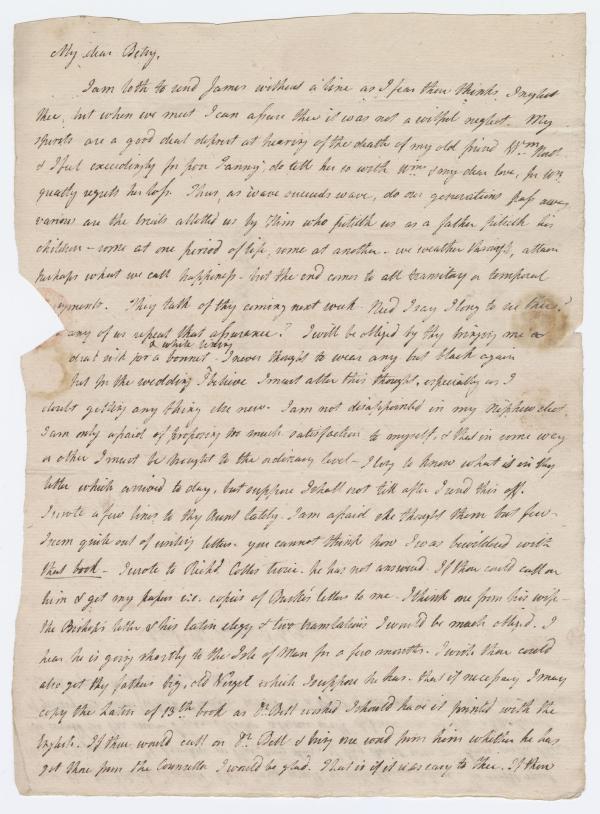 My dear Betsy,
I am loth to send James without a line as I fear thou thinks I neglect
thee, but when we meet I can assure thee it was not a wilful neglect. My
spirits are a good deal deprest at hearing of the death of my old friend Wm
& I feel exceedingly for poor Fanny, do tell her so with Wm's & my dear love, for Wm
greatly regrets her loss. Thus, as wave succeeds wave, do our generations pass away
various are the trials allotted us by Him who pitieth us as a father pitieth his
children – some at one period of life, some at another – we weather through, attain
perhaps what we call happiness – but the end comes to all transitory or temporal
They talk of thy coming next week – Need I say I long to see thee?
any of us repeat that assurance? I will be obliged by thy bringing me a
drawn silk for a bonnet – I never thought to wear any but black again
& white lining
but for the wedding I believe I must alter this thought, especially as I
doubt getting any thing else new. I am not disappointed in my nephew elect.
I am only afraid of proposing too much satisfaction to myself, & that in some way
or other I must be brought to the ordinary level – I long to know what is in thy
letter which arrived to day, but suppose I shall not till after I send this off.
I wrote a few lines to thy Aunt lately – I am afraid she thought them but few –
I seem quite out of writing letters – you cannot think how I was bewildered with
that book – I wrote to Richd twice – he has not answered. If thou could call on
him & get my papers i.e. copies of Burke's letters to me – I think one from his wife –
the Bishop's letter & his latin elegy & two translations I would be much obliged. I
hear he is going shortly to the Isle of Man for a few months. I wish thou could
also get thy father's big, old Virgil which I suppose he has – that if necessary I may
copy the Latin of 13th book as Dr Bell wished I should have it printed with the
English. If thou would call on Dr Bell & bring me word from him whether he has
got those from the Counsellor I would be glad. That is if it was easy to thee. If thou